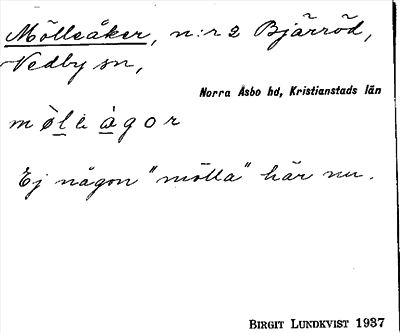 Mölleåker, n:r 2 Bjärröd,
Vedby sn,
Norra Åsbo hd, Kristianstads län
mø̀lė ågor
Ej någon "mölla" här nu.
BIRGIT LUNDKVIST 1937